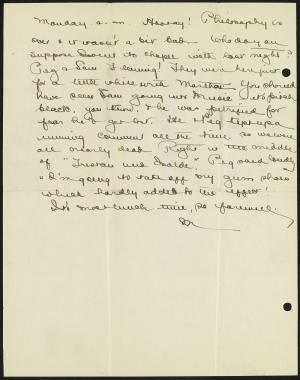 Monday a.m. Hooray! Philosophy is
over & it wasn't a bit bad. Who do you
suppose I went to chapel with last night?
Peg & Sam Fleming! They were here just
for a little while with Martha. You should
have seen Sam going into Music
black, you know & he was petrified for
fear he'd get lost. He & Peg kept up a
running comment all the time so we were
all nearly dead. Right in the middle
of "Tristan und Isolde," Peg said loudly
"I'm going to take off my gum shoes"
which hardly added to the effect!
It's most lunch time, so farewell.